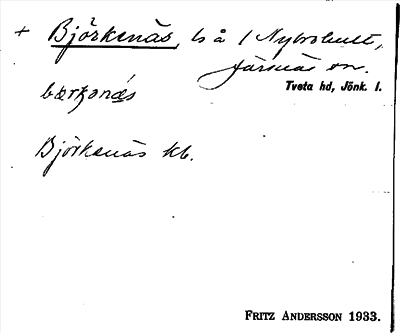 + Björkenäs, ls å 1 Nybrohult,
Järsnäs sn.
Tveta hd, Jönk. l.
bærkənæ̀s
Björkenäs kb.
FRITZ ANDERSSON 1933.